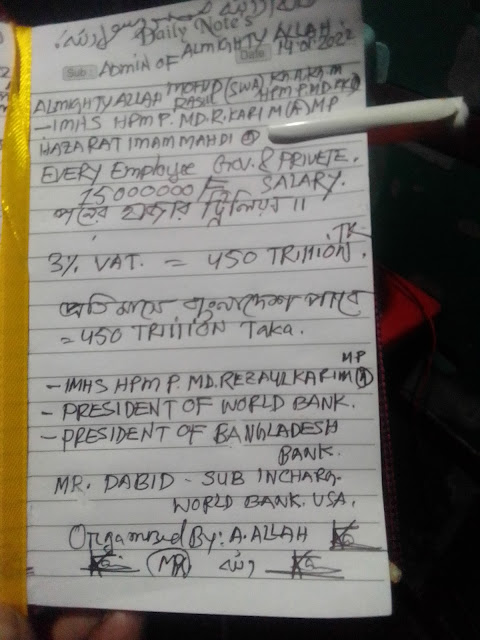 Daily Note's
Sub: ADMIN OF ALMIGHTY ALLAH.
Date: 14.01.2022
ALMIGHTY ALLAH MOHVD (SWA) RASUL HPM P. MD.
— IMHS HPM P. MD. R. KARIM (A) MP
HAZARAT IMAM MAHDI (A)
EVERY Employee Gov. & PRIVETE.
15000000/= SALARY.
পনের হাজার ট্রিলিয়ন ॥
3% VAT. = 450 TRIllION TK.
প্রতি মাসে বাংলাদেশ পাবে
= 450 TRIllION Taka.
— IMHS HPM P. MD. REZAUL KARIM (A) MP
— PRESIDENT OF WORLD BANK.
— PRESIDENT OF BANGLADESH
BANK.
MR. DABID - SUB INCHARG.
WORLD BANK. USA.
Organized By: A. ALLAH
MR